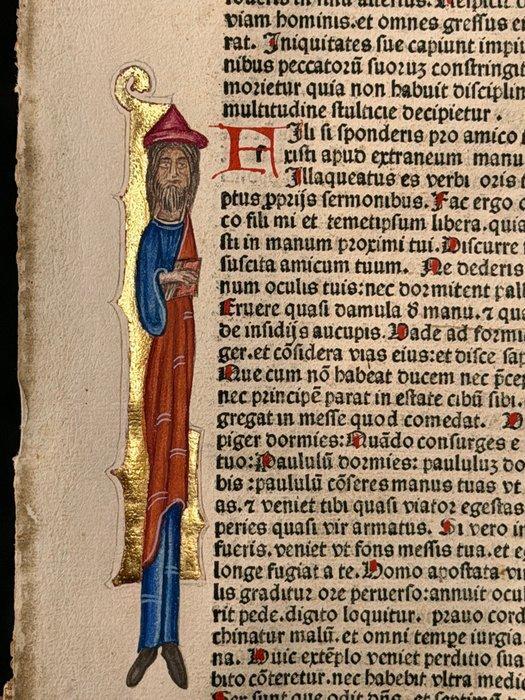 viam hominis.et omnes gressus e
rat. Iniquitates sue capiunt impiu
nibus peccatorū suorūz constringit
morietur quia non habuit disciplin
multitudine stulticie decipietur.
Fili si sponderis pro amico
xisti apud extraneum manu
Illaqueatus es verbi oris t
ptus ꝓprijs sermonibus. Fac ergo
co fili mi et temetipsum libera.quia
sti in manum proximi tui. Discurre
suscita amicum tuum. Ne dederis
num oculis tuis:nec dormitent palp
Eruere quasi damula d̄ manu.⁊ qua
de insidijs aucupis. Vade ad formi
ger.et cōsidera vias eius:et disce sap
Que cum nō habeat ducem nec p̄cep
nec principē parat in estate cibū sibi.
gregat in messe quod comedat.
piger dormies:Quādo consurges e
tuo:Paululū dormies: paululuz do
bis :paululū cōseres manus tuas vt
as.⁊ veniet tibi quasi viator egestas
peries quasi vir armatus. Si vero i
fueris.veniet vt fons messis tua.et e
longe fugiat a te. Homo apostata vi
lis graditur ore peruerso:annuit ocul
rit pede.digito loquitur. prauo cord
chinatur malū.et omni tempe iurgia
na. Huic extēplo veniet perditio sua
bito cōteretur.nec habebit vltra medi